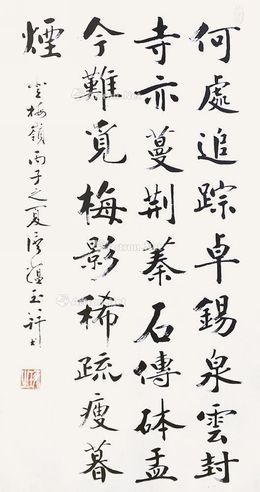 何處追踪卓錫泉雲封
寺亦蔓荆蓁石傳砵盂
今難覓梅影稀疏瘦暮
煙
登梅嶺丙子之夏